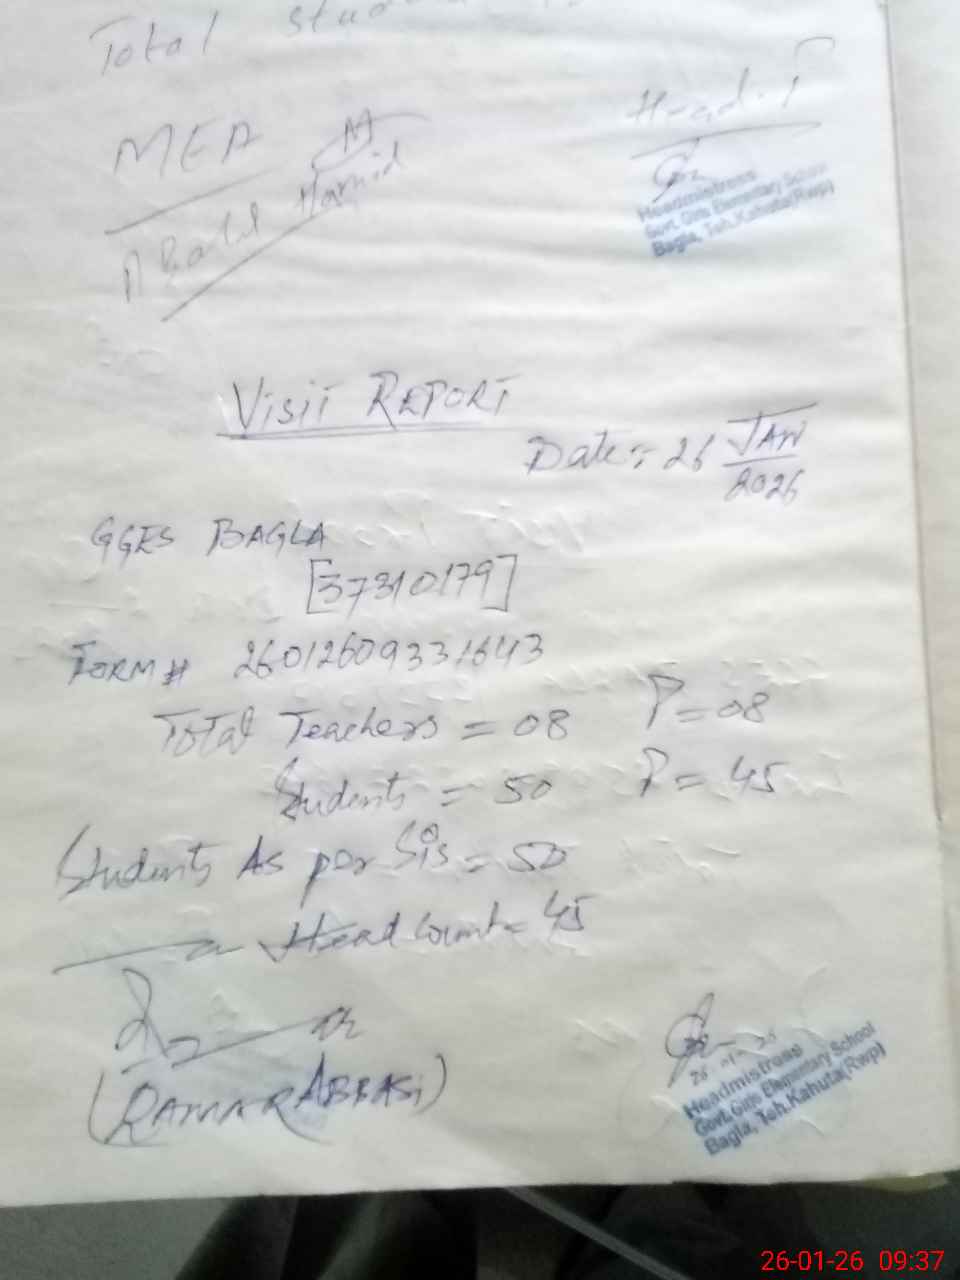 Total
MEA
Abdul Hamid
Head
Headmistress
Govt. Girls Elementary School
Bagla, Teh.Kahuta(Rwp)
VISIT REPORT
Date:- 26 JAN
2026
GGES BAGLA
[37310179]
FORM # 26012609331643
Total Teachers = 08 P = 08
Students = 50 P = 45
Students As per Sis = 50
Head Count = 45
(QAMAR ABBASI)
Headmistress
Govt. Girls Elementary School
Bagla, Teh.Kahuta(Rwp)
26-01-26 09:37